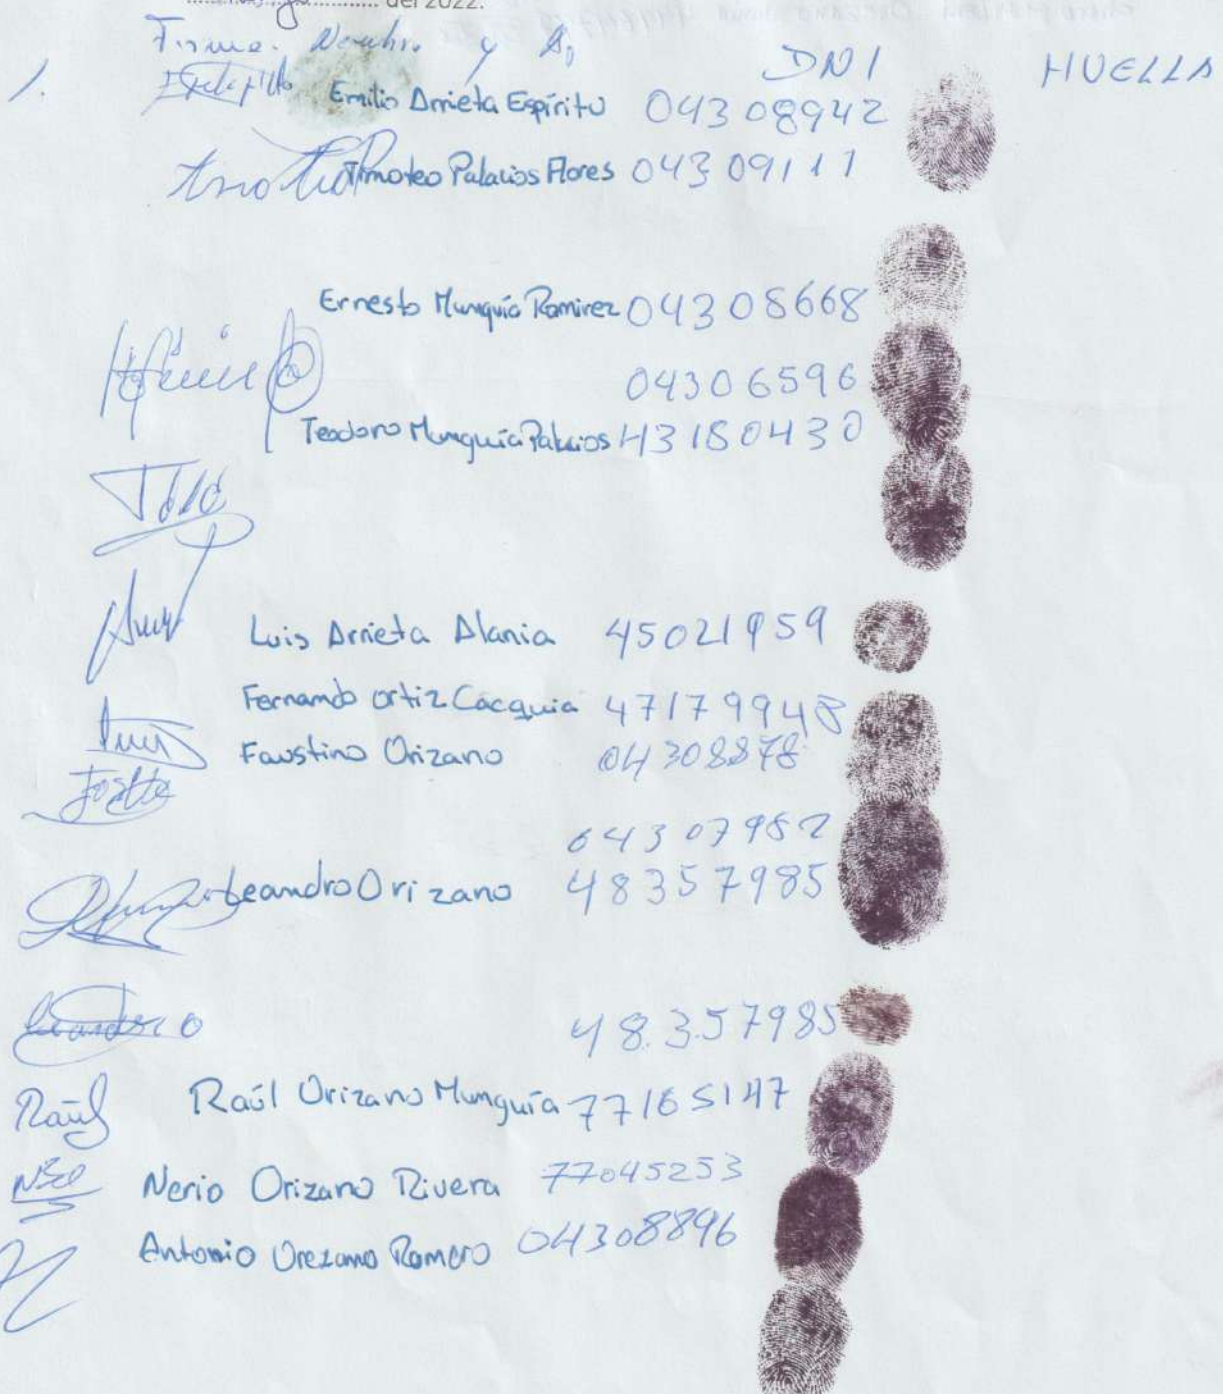 del 2022.
Firma. Nombre y Ap DNI HUELLA
1. Emilio Arrieta Espíritu 04308942
Timoteo Palacios Flores 04309111
Ernesto Munguía Ramirez 04308668
04306596
Teodoro Munguía Palacios 43180430
Luis Arrieta Alania 45021959
Fernando Ortiz Cacquia 47179948
Faustino Orizano 04308878
04307982
Leandro Orizano 48357985
Leandro 48.357985
Raúl Raúl Orizano Munguía 77165147
Nerio Orizano Rivera 77045253
Antonio Orezano Romero 04308896